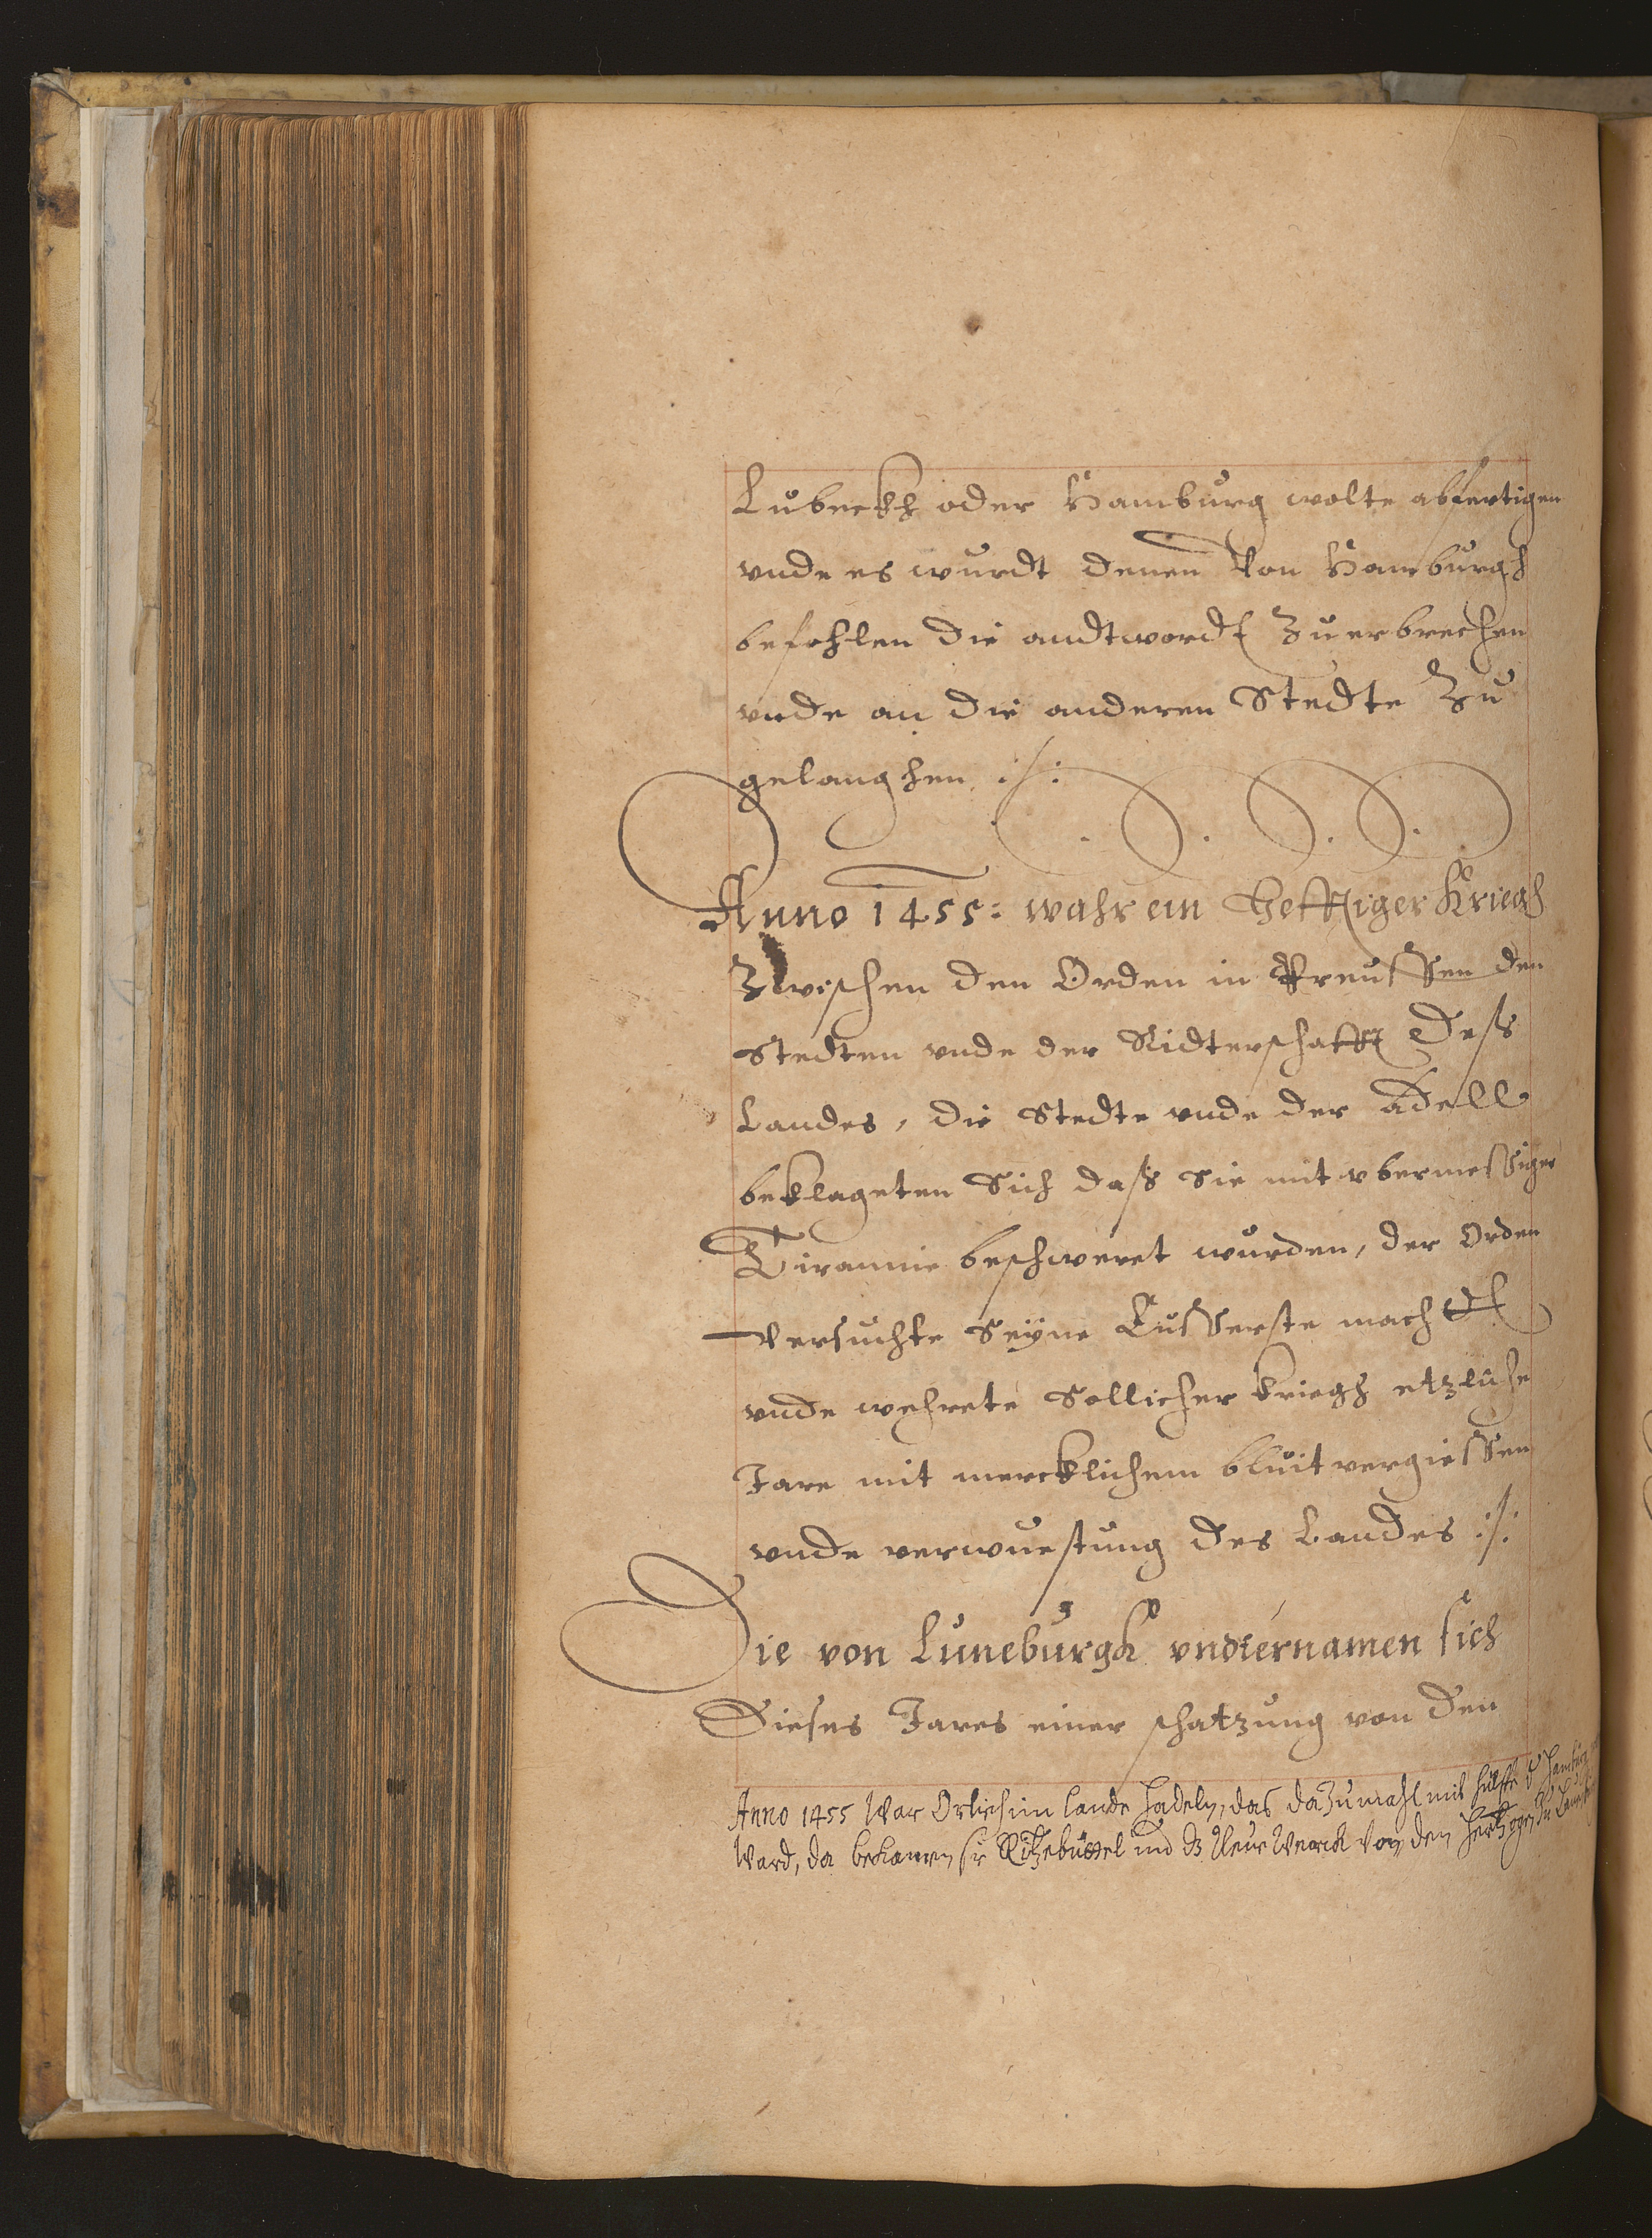 Lubeckh oder Hamburg wolte abfertigen
vnde es wurdt denen Von Hamburgh
befohlen die andtwordt Zuerbrechen
vnde an die anderen Stedte Zu
gelanghen :/:
Anno 1455: wahr ein Hefftiger Kriegh
Zwischen den Orden in Preussen den
Stedten vnde der Ridterschafft deß
Landes, die Stedte vnde der Adell
beklageten Sich daß Sie mit vbermessiger
Tirannie beschweret wurden, der Orden
versuchte Seyne Eusserste macht
vnde wehrete Sollicher kriegh etzliche
Jare mit mercklichem bluit vergiessen
vnde verwuestung des Landes :/:
Die von Luneburgh vndternamen sich
Dieses Jares einer schatzung von den
Anno 1455 War Orlich im lande Hadeln, das dazumahl mit hülffe d. Hamburg
Ward, da bekamen sie Ritzebüttel und dz Neue Werck von den Hertzogen zu